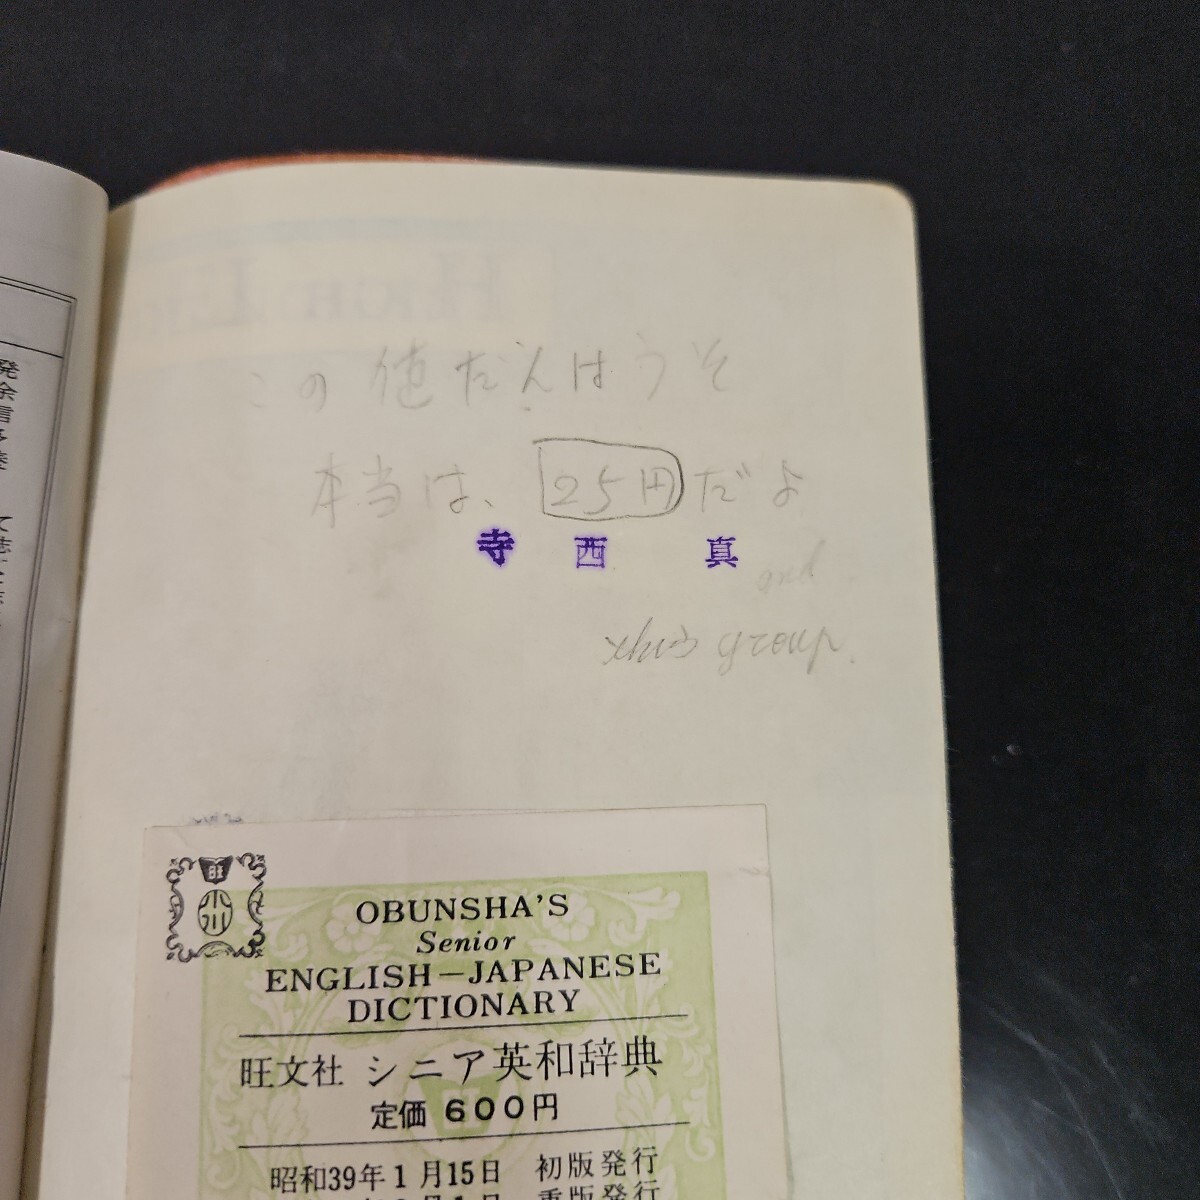 この他だんはうそ
本当は、25円だよ
寺西 真
and
this group.
OBUNSHA'S
Senior
ENGLISH-JAPANESE
DICTIONARY
旺文社 シニア英和辞典
定価 600円
昭和39年1月15日 初版発行
重版発行